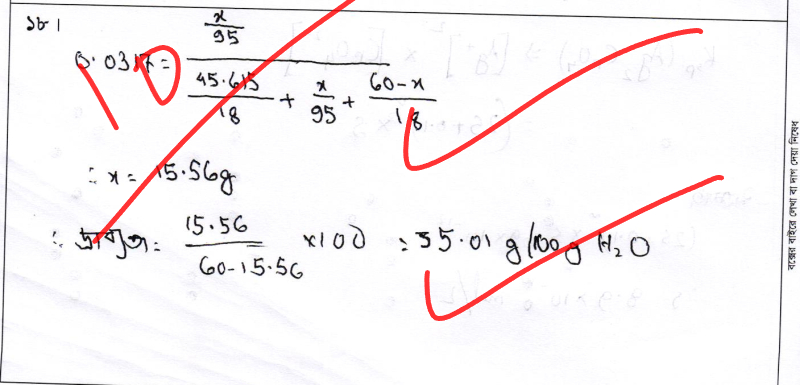 ১৮।
0.0317 = (x/95) / (45.615/18 + x/95 + (60-x)/18)
10
∴ x = 15.56g
∴ দ্রাব্যতা = 15.56/(60-15.56) ×100 = 35.01 g/100g H₂O
বক্সের বাইরে লেখা বা দাগ দেয়া নিষেধ